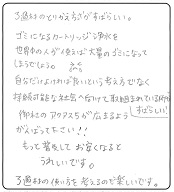 3通りのとりかえさがすばらしい。
ゴミになるカートリッジ浄水を
世界中の人が使えば大量のゴミになって
しまうでしょう。
自分だけよければ良いという考え方でなく
持続可能な社会へ向けて取組まれている所が
すばらしい!
御社のアクアスが広まるよう
がんばって下さい!!
もって普及して お安くなると
うれしいです。
3通りの使い方を考えるのも楽しいです。